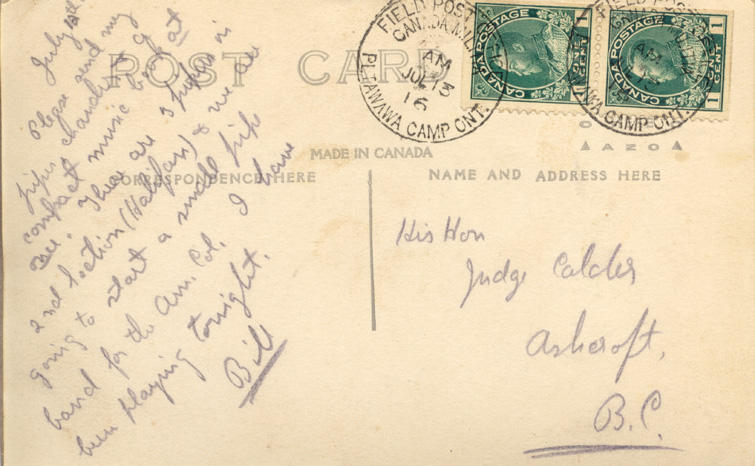 POST CARD
MADE IN CANADA
CORRESPONDENCE HERE
NAME AND ADDRESS HERE
FIELD POST
CANADA MILITIA
AM
JUL 13
16
PETAWAWA CAMP ONT.
CANADA POSTAGE
1 CENT
CANADA POSTAGE
1 CENT 1
AM
13
WA CAMP ONT.
AZO
July
Please send my
pipes chanter &
compact music book at
once. There are 3 pipers in
2nd Section (Halifax) & we are
going to start a small pipe
band for the Am. Col. I have
been playing tonight.
Bill
His Hon
Judge Calder
Ashcroft,
B.C.